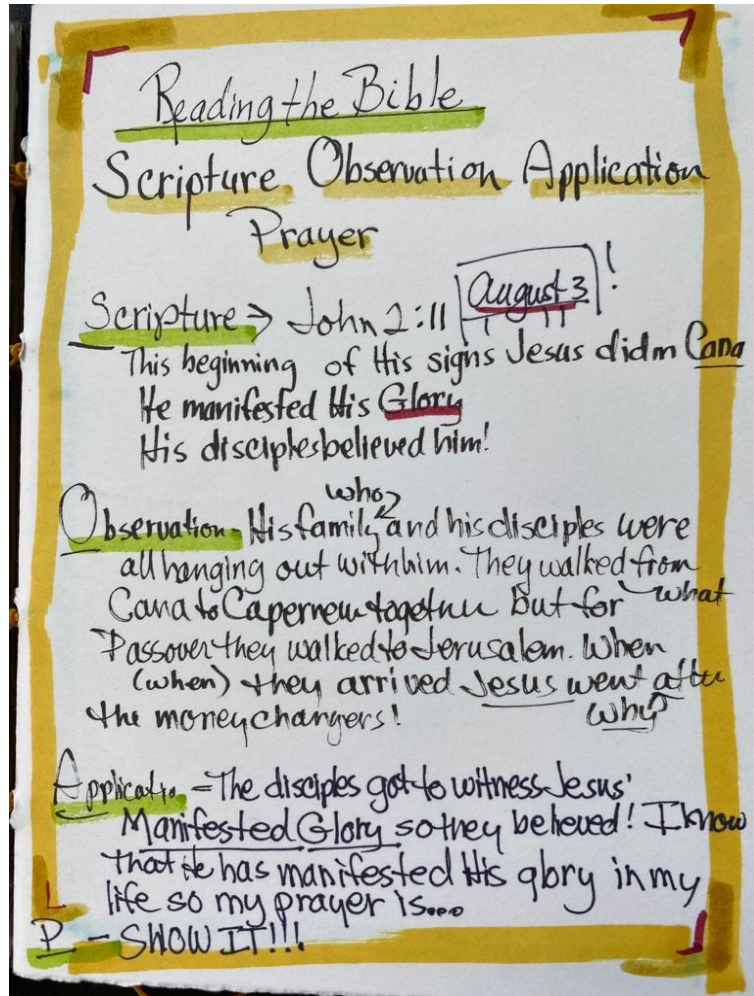 Reading the Bible
Scripture Observation Application
Prayer
Scripture → John 2:11 August 3!
This beginning of His signs Jesus did in Cana
He manifested His Glory
His disciples believed him!
who?
Observation - His family, and his disciples were
all hanging out with him. They walked from
Cana to Capernew together but for what
Passover they walked to Jerusalem. When
(when) they arrived Jesus went after
the moneychangers! why?
Applicatio - The disciples got to witness Jesus'
Manifested Glory so they believed! I know
that He has manifested His glory in my
life so my prayer is...
P - SHOW IT!!!